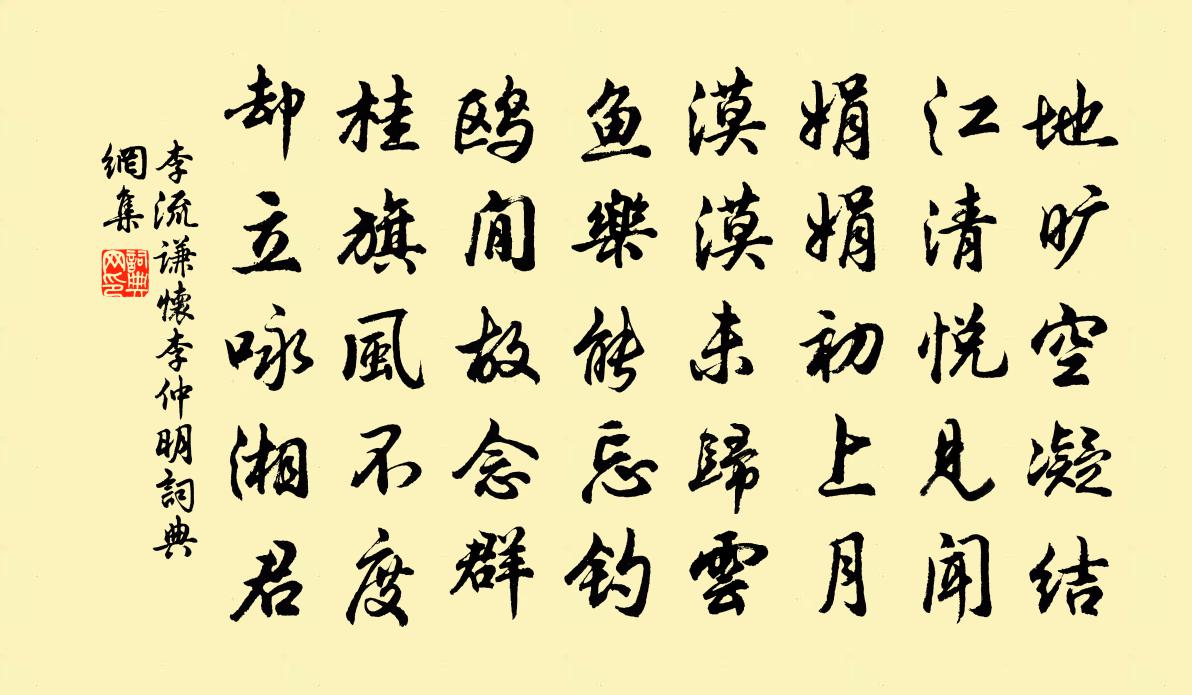 地旷空凝结
江清悦见闻
娟娟初上月
漠漠未歸雲
鱼樂能忘钓
鸥间故念群
桂旗風不度
却立咏湘君
李流谦懷李仲明詞典
網集
詞典
网印